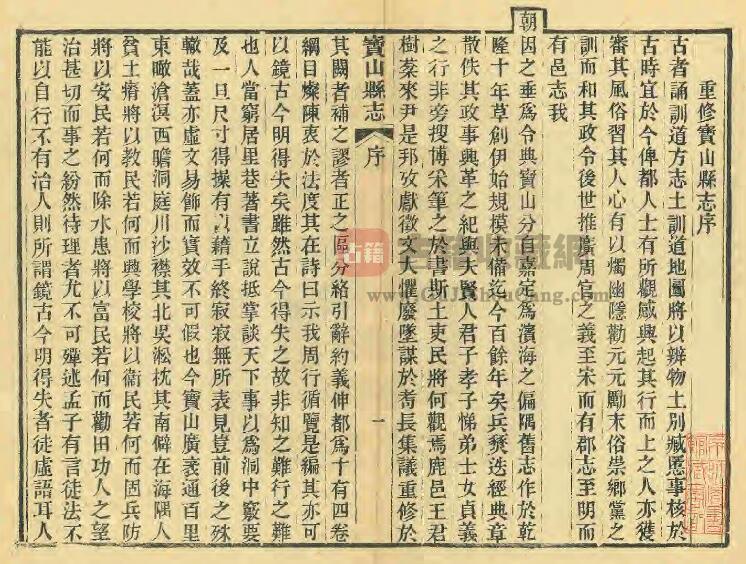 重修寶山縣志序
古者誦訓道方志土訓道地圖將以辨物土別臧慝事核於
古時宜於今俾都人士有所觀感興起其行而上之人亦獲
審其風俗習其人心有以燭幽隱勸元元勵末俗崇鄉黨之
訓而和其政令後世推廣周官之義至宋而有郡志至明而
有邑志我
朝因之垂爲令典寶山分自嘉定爲濱海之偏隅舊志作於乾
隆十年草創伊始規模未備迄今百餘年矣兵燹迭經典章
散佚其政事興革之紀與夫賢人君子孝子悌弟士女貞義
之行非旁搜博采筆之於書斯土吏民將何觀焉鹿邑王君
樹棻來尹是邦攷獻徵文大懼廢墜謀於耆長集議重修於
寶山縣志 序 一
其闕者補之謬者正之區分絡引辭約義伸都爲十有四卷
綱目燦陳衷於法度其在詩曰示我周行循覽是編其亦可
以鏡古今明得失矣雖然古今得失之故非知之難行之難
也人當窮居里巷著書立說抵掌談天下事以爲洞中竅要
及一旦尺寸得操有以藉手終寂寂無所表見豈前後之殊
轍哉蓋亦虛文易飾而實效不可假也今寶山廣袤通百里
東瞰滄溟西瞻洞庭川沙襟其北吳淞枕其南僻在海隅人
貧土瘠將以教民若何而興學校將以衞民若何而固兵防
將以安民若何而除水患將以富民若何而勸田功人之望
治甚切而事之紛然待理者尤不可殫述孟子有言徒法不
能以自行不有治人則所謂鏡古今明得失者徒虛語耳人
古籍